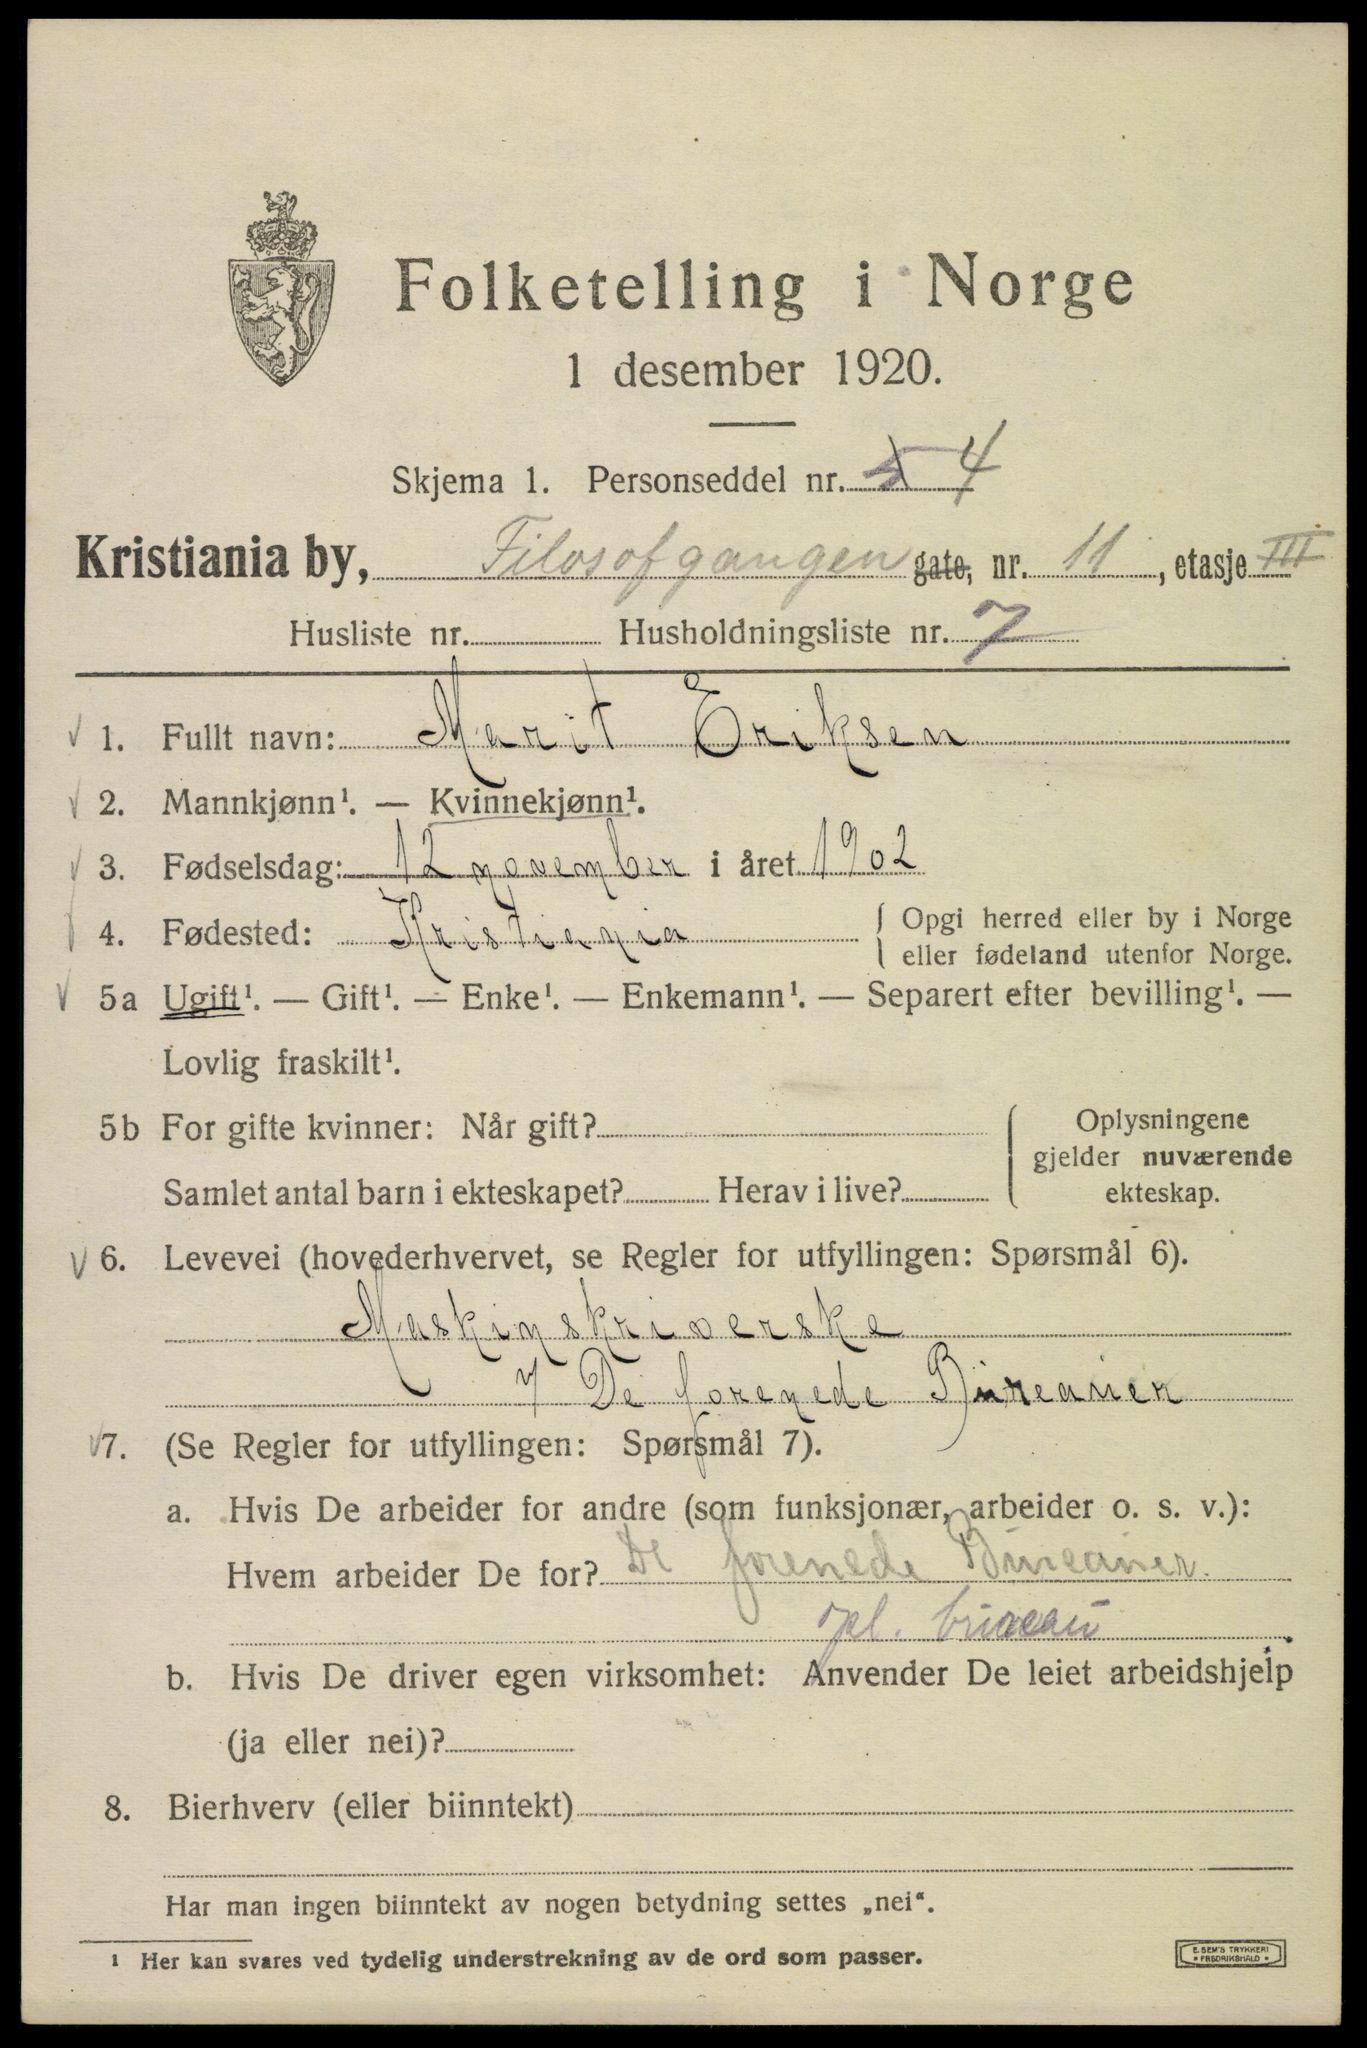 Folketelling i Norge
1 desember 1920.
Skjema 1. Personseddel nr. 5 4
Kristiania by, Filosofgangen gate, nr. 11, etasje III
Husliste nr. Husholdningsliste nr. 7
1. Fullt navn: Marit Eriksen
2. Mannkjønn¹. — Kvinnekjønn¹.
3. Fødselsdag: 12 november i året 1902
4. Fødested: Kristiania { Opgi herred eller by i Norge
eller fødeland utenfor Norge.
5a Ugift¹. — Gift¹. — Enke¹. — Enkemann¹. — Separert efter bevilling¹. —
Lovlig fraskilt¹.
5b For gifte kvinner: Når gift?
Samlet antal barn i ekteskapet? Herav i live?
Oplysningene
gjelder nuværende
ekteskap.
6. Levevei (hovederhvervet, se Regler for utfyllingen: Spørsmål 6).
Maskinskriverske
De forenede Büreauer
7. (Se Regler for utfyllingen: Spørsmål 7).
a. Hvis De arbeider for andre (som funksjonær, arbeider o. s. v.):
Hvem arbeider De for? De forenede Büreauer.
b. Hvis De driver egen virksomhet: Anvender De leiet arbeidshjelp
(ja eller nei)?
8. Bierhverv (eller biinntekt)
Har man ingen biinntekt av nogen betydning settes „nei“.
¹ Her kan svares ved tydelig understrekning av de ord som passer.
E. SEM'S TRYKKERI
* FREDRIKSHALD *